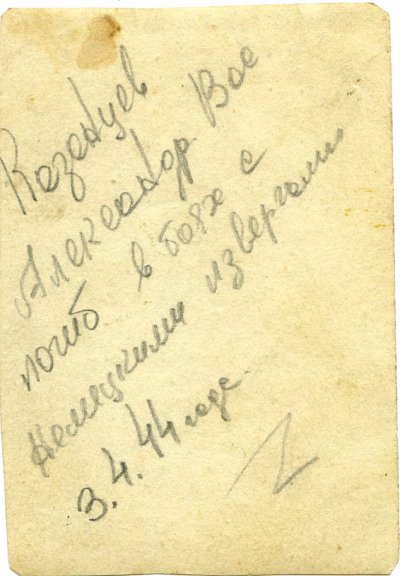 Казанцев
Александр Вас
погиб в боях с
немецкими извергами
3.4.44 года